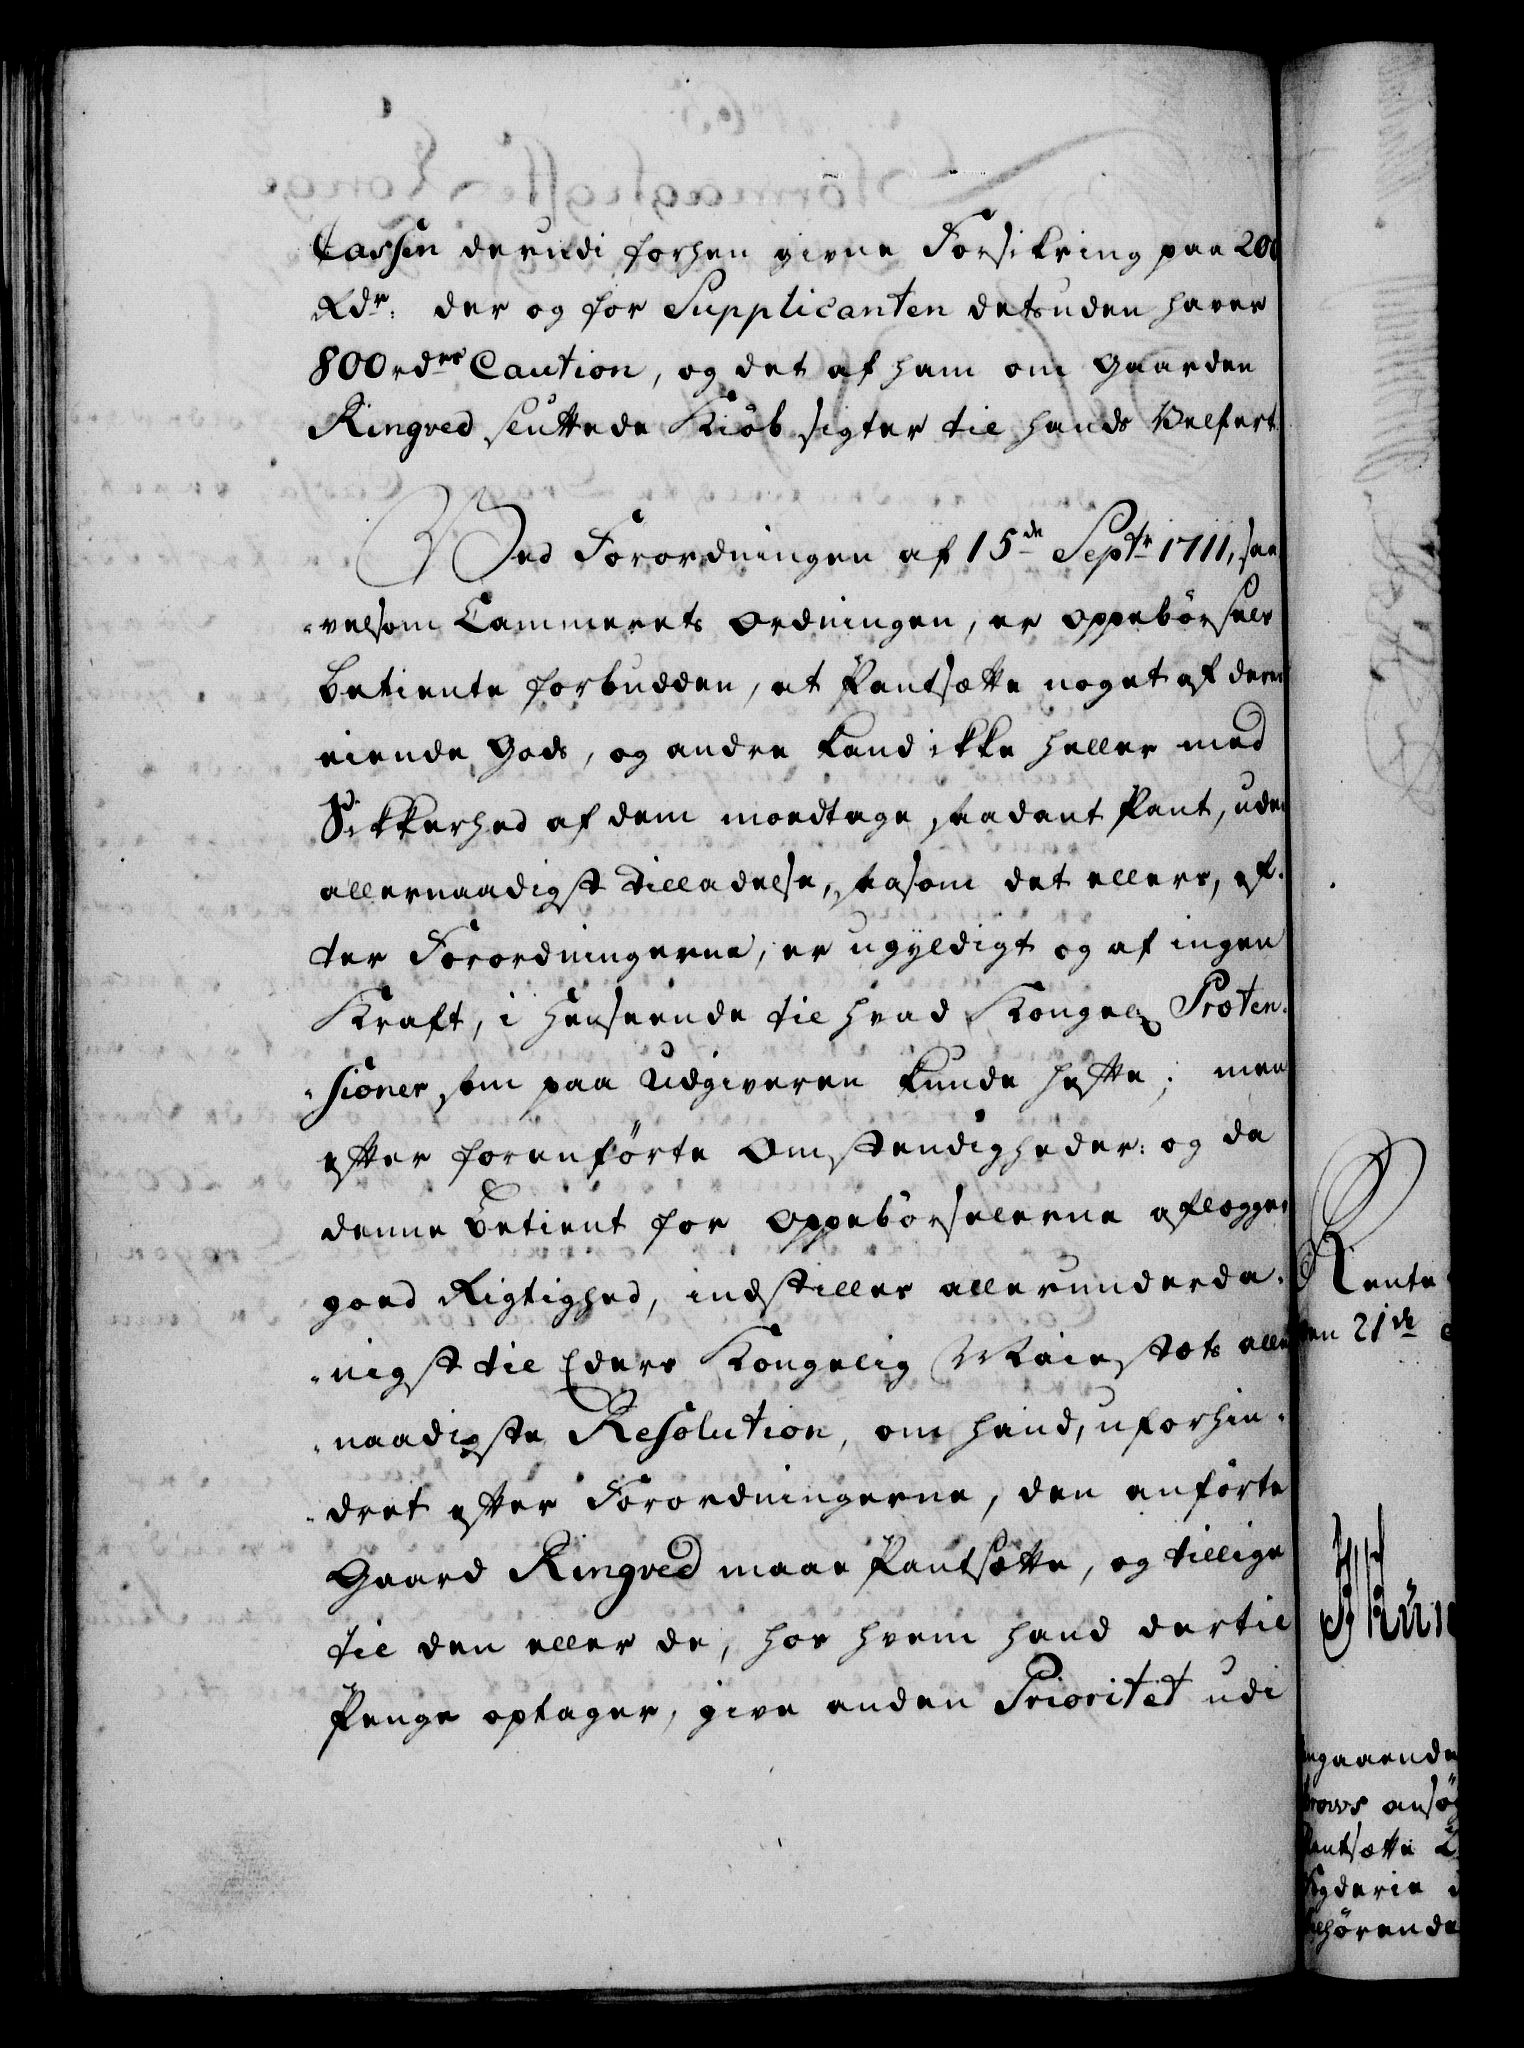 Cassen derudi forhen givne Forsikring paa 200
Rdr. der og for Supplicanten detsuden haver
800 rdrs Caution, og det af ham om Gaarden
Ringved sluttede Kiöb sigter til hands Velfert.
Ved Forordningen af 15de Septr 1711, saa
velsom Cammerets Ordningen, er Oppebörsels
betiente forbudden, at Pantsætte noget af deres
eiende Gods, og andre kand ikke heller med
Sikkerhed af dem moedtage saadant Pant, uden
allernaadigst Tilladelse, saasom det ellers, ef-
ter Forordningerne, er ugyldigt og af ingen
Kraft, i Henseende til hvad Kongel. Præten-
sioner som paa Udgiveren kunde hefte; men
efter foranförte Omstændigheder: og da
denne Betient for Oppebörselerne aflægger
goed Rigtighed, indstilles allerunderda-
nigst til Eders Kongelig Maiestæts aller
naadigste Resolution, om hand, uforhin-
dret efter Forordningerne, den anförte
Gaard Ringved maae Pantsætte, og tillige
til den eller de, hos hvem hand dertil
Penge optager, give anden Prioritet udi
Rente
den 21de
angaaende
ansö
Pantsætte
Fogderie
tilhörende